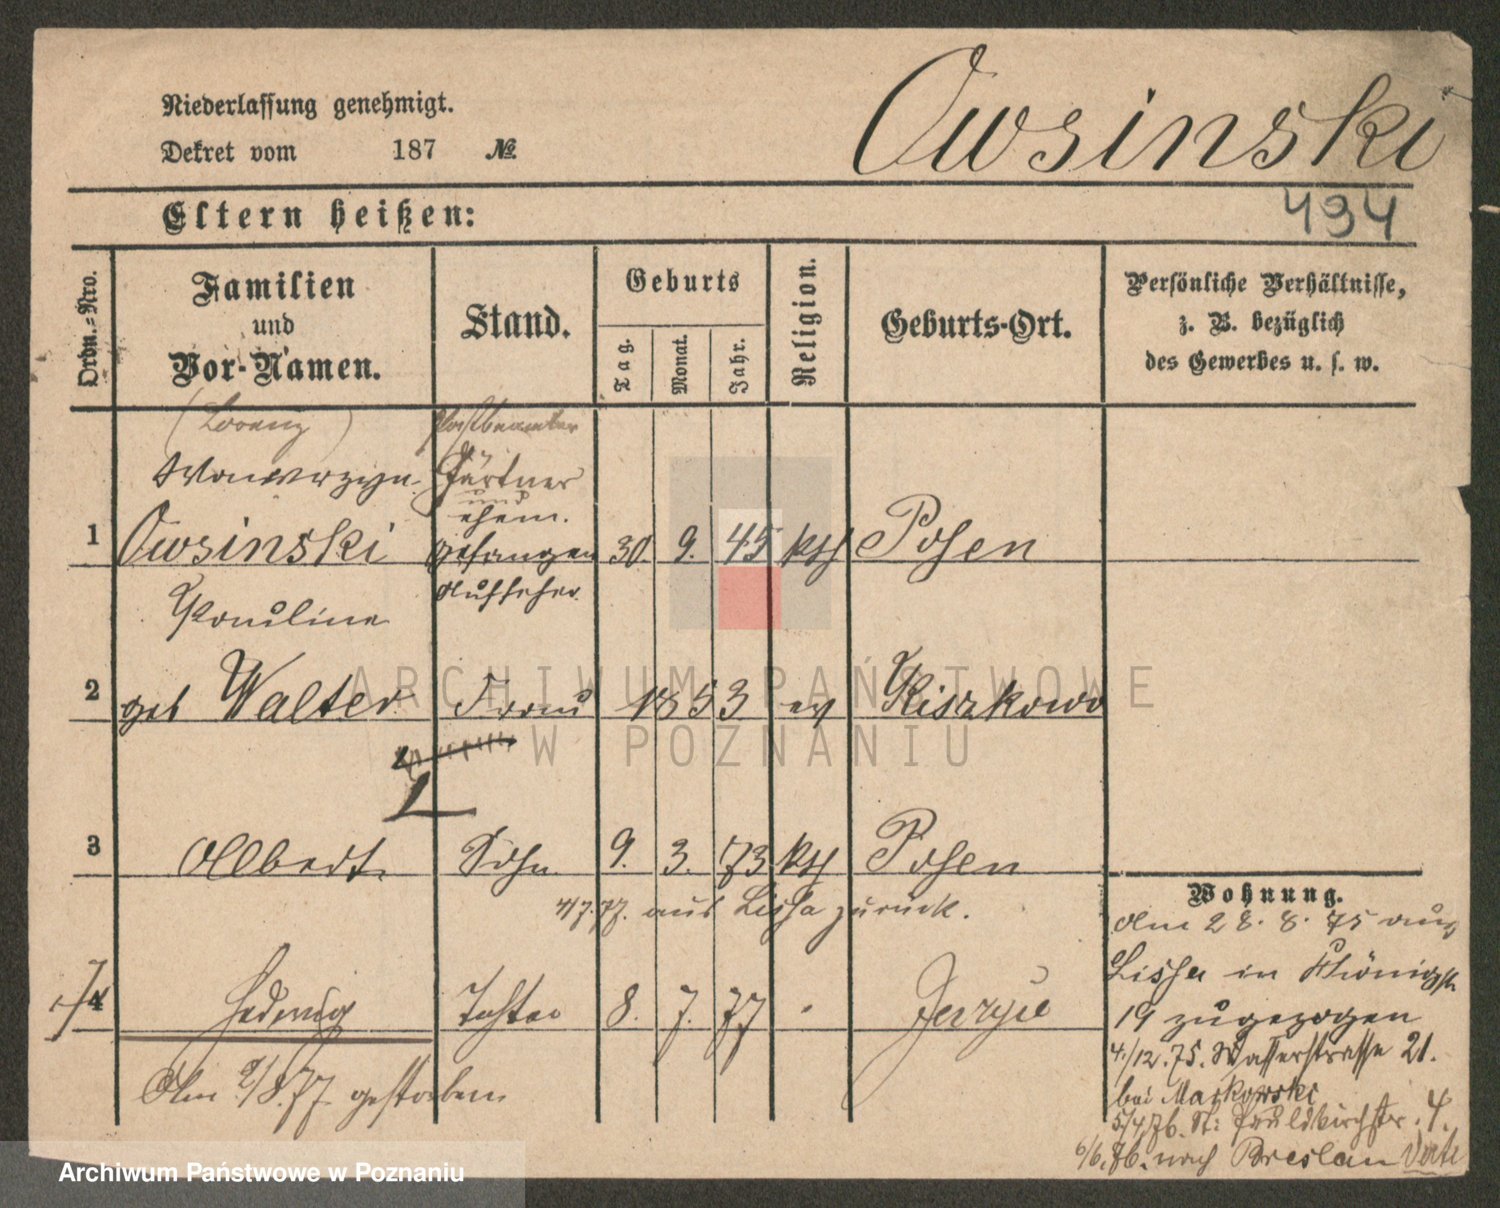 Niederlassung genehmigt.
Owsinski
Dekret vom 187 №
Eltern heißen:
494
Ordn.-Nro.
Familien
und
Vor-Namen.
Stand.
Geburts
Tag.
Monat.
Jahr.
Religion.
Geburts-Ort.
Persönliche Verhältnisse,
z. B. bezüglich
des Gewerbes u. s. w.
(Lorenz) Postbeamter
Wawrzyn Gärtner
und
ehem.
1 Owsinski Gefangen 30. 9. 45 kth Posen
Aufseher
Pauline
2 geb Walter Frau 1853 ev Kiszkowo
3 Albert. Sohn 9. 3. 73 kth Posen
Wohnung.
4/7.77. aus Lissa zurück.
Am 28.8.75 aus
Lissa in Königst
4 Hedwig Tochter 8. 7. 77 Jerzyce
19 zugezogen
4/12.75. Wasserstrasse 21.
Am 9/8.77 gestorben
bei Markowski
5/4.76. St: Paulikirchstr. 4.
6/6.76. nach Breslau Verte
ARCHIWUM PAŃSTWOWE
W POZNANIU
Archiwum Państwowe w Poznaniu